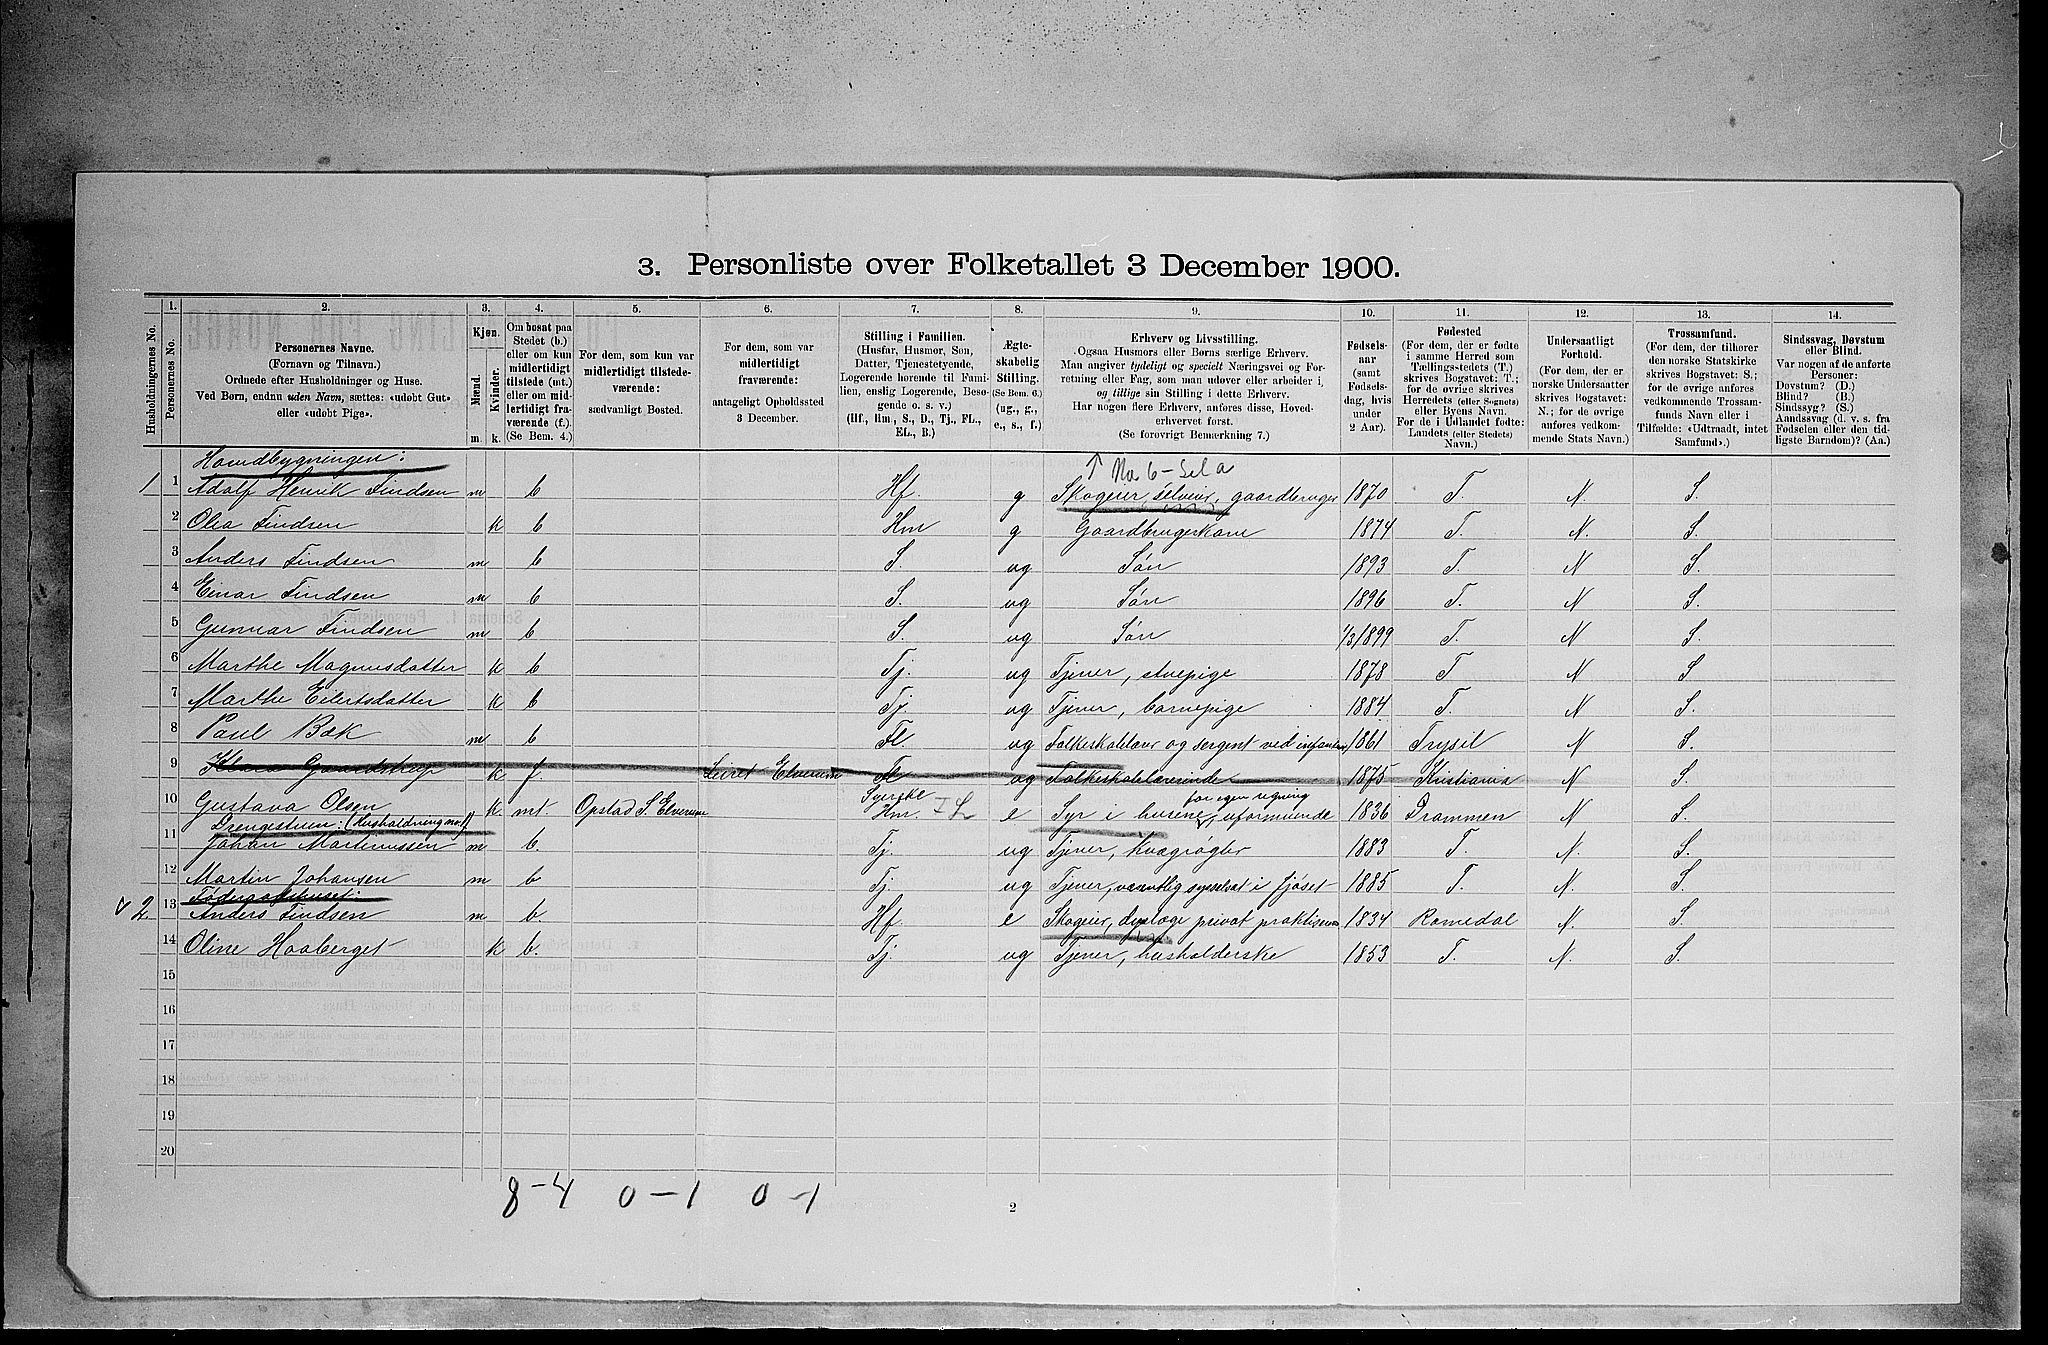 3. Personliste over Folketallet 3 December 1900.
1. 2. 3. 4. 5. 6. 7. 8. 9. 10. 11. 12. 13. 14.
Husholdningernes No.
Personernes No.
Personernes Navne.
(Fornavn og Tilnavn.)
Ordnede efter Husholdninger og Huse.
Ved Børn, endnu uden Navn, sættes: «udøbt Gut»
eller «udøbt Pige».
Kjøn.
Mænd.
Kvinder.
m. k.
Om bosat paa
Stedet (b.)
eller om kun
midlertidigt
tilstede (mt.)
eller om mid-
lertidigt fra-
værende (f.).
(Se Bem. 4.)
For dem, som kun var
midlertidigt tilstede-
værende:
sædvanligt Bosted.
For dem, som var
midlertidigt
fraværende:
antageligt Opholdssted
3 December.
Stilling i Familien.
(Husfar, Husmor, Søn,
Datter, Tjenestetyende,
Logerende hørende til Fami-
lien, enslig Logerende, Besø-
gende o. s. v.)
(Hf., Hm., S., D., Tj., FL.,
EL., B.)
Ægte-
skabelig
Stilling.
(Se Bem. 6.)
(ug., g.,
e., s., f.)
Erhverv og Livsstilling.
Ogsaa Husmors eller Børns særlige Erhverv.
Man angiver tydeligt og specielt Næringsvei og For-
retning eller Fag, som man udøver eller arbeider i,
og tillige sin Stilling i dette Erhverv.
Har nogen flere Erhverv, anføres disse, Hoved-
erhvervet først.
(Se forøvrigt Bemærkning 7.)
Fødsels-
aar
(samt
Fødsels-
dag, hvis
under
2 Aar).
Fødested
(For dem, der er fødte
i samme Herred som
Tællings-stedets (T.)
skrives Bogstavet: T.;
for de øvrige skrives
Herredets (eller Sognets)
eller Byens Navn.
For de i Udlandet fødte:
Landets (eller Stedets)
Navn.)
Undersaatligt
Forhold.
(For dem, der er
norske Undersaatter
skrives Bogstavet:
N.; for de øvrige
anføres vedkom-
mende Stats Navn.)
Trossamfund.
(For dem, der tilhører
den norske Statskirke
skrives Bogstavet: S.;
for de øvrige anføres
vedkommende Trossam-
funds Navn eller i
Tilfælde: «Udtraadt, intet
Samfund».)
Sindssvag, Døvstum
eller Blind.
Var nogen af de anførte
Personer:
Døvstum? (D.)
Blind? (B.)
Sindssyg? (S.)
Aandssvag (d. v. s. fra
Fødselen eller den tid-
ligste Barndom)? (Aa.)
Hovedbygningen: ↑ No 6 - Sel a
1 1 Adolf Henrik Findsen m b Hf. g Skogeier, selveier, gaardbruger 1870 T. N. S.
2 Olea Findsen k b Hm g Gaardbrugerkone 1874 T. N. S.
3 Anders Findsen m b S. ug Søn 1893 T. N S.
4 Einar Findsen m b S. ug Søn 1896 T. N S.
5 Gunnar Findsen m b S. ug Søn 1/3 1899 T. N S.
6 Marthe Magnusdatter k b Tj. ug Tjener, stuepige 1878 T N S
7 Marthe Eilertsdatter k b Tj. ug Tjener, barnepige 1884 T. N S.
8 Paul Bæk m b Fl. ug Folkeskolelærer og sergent ved infanteri 1861 Trysil N S.
9 Klara Gaardstrup k f. Leiret Elverum Fl ug Folkeskolelærerinde 1875 Kristiania N S.
10 Gustava Olsen k mt. Opstad S. Elverum Syerske Hm. e Syr i husene for egen regning, uformuende 1836 Drammen N S.
Drengestuen: (Husholdning no. 1)
11 Johan Martinussen m b. Tj. ug Tjener, kvægrøgter 1883 T. N. S.
12 Martin Johansen m b Tj. ug Tjener, væsentlig sysselsat i fjøset 1885 T. N. S.
Føderaadshuset:
2 13 Anders Findsen m b. Hf. e Skogeier, dyrlæge privat praktiserende 1834 Romedal N. S.
14 Oline Haaberget k b. Tj. ug Tjener, husholderske 1853 T. N. S.
15
16
17
18
19
20
8-4 0-1 0-1
2